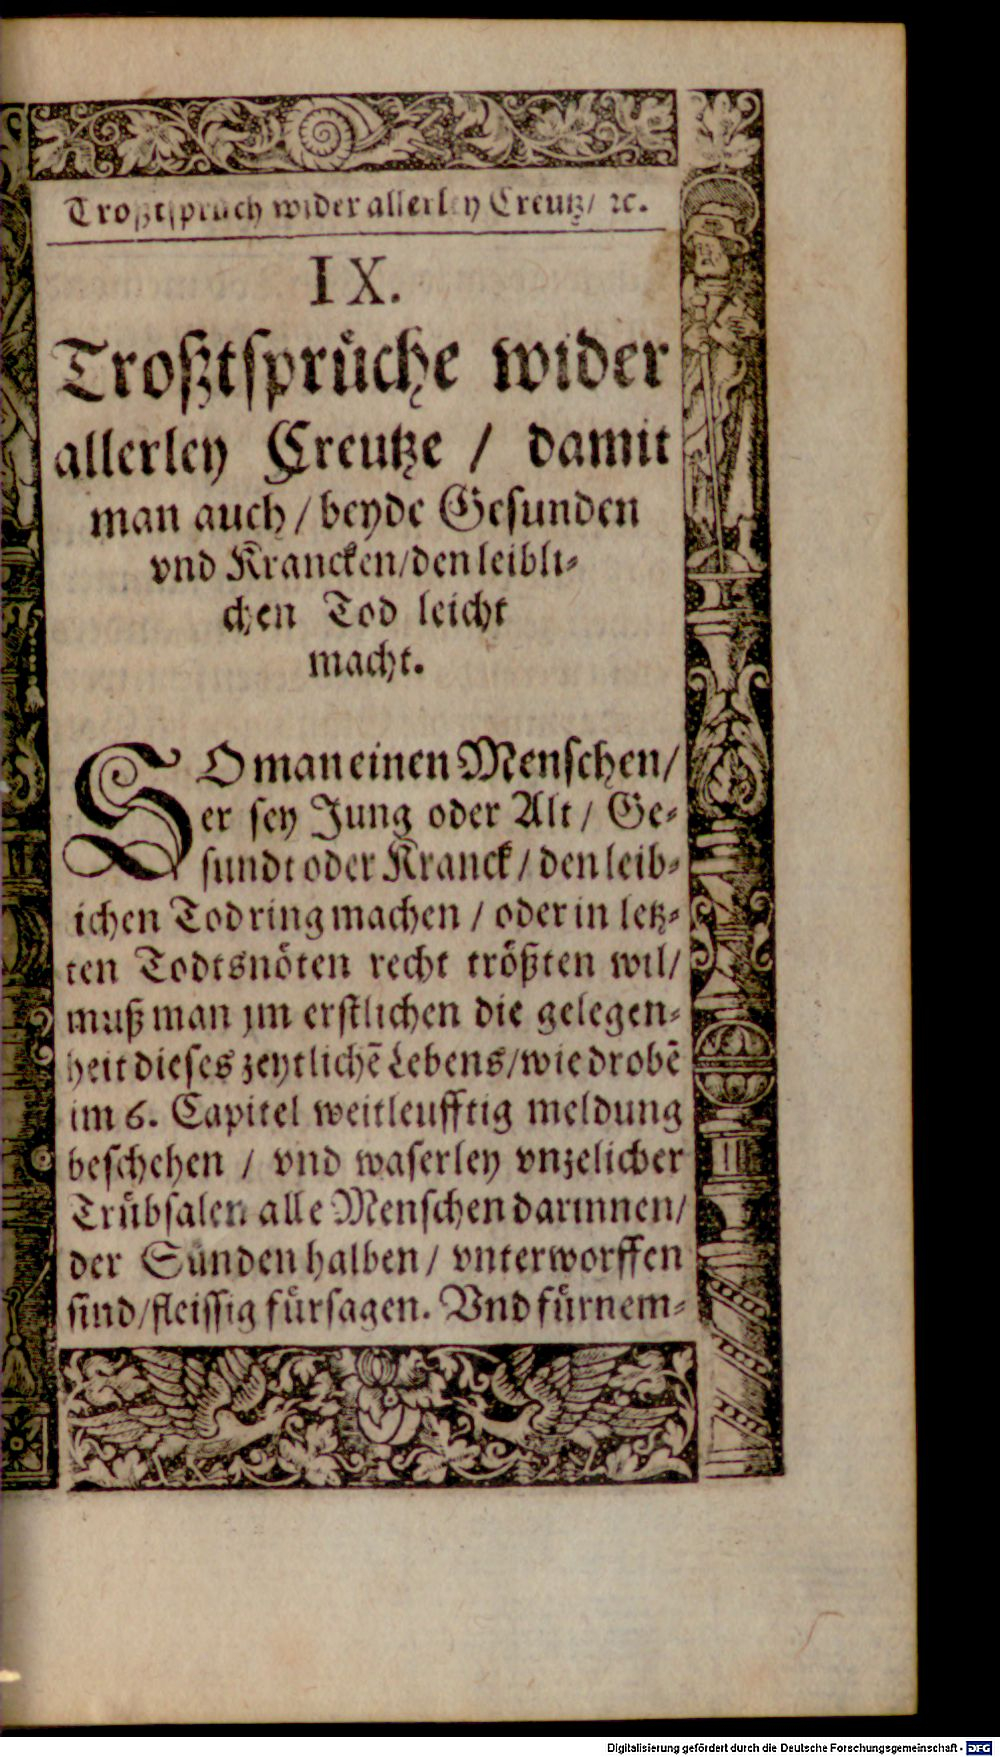 Troßtspruch wider allerley Creutz/ ꝛc.
IX.
Troßtsprüche wider
allerley Creutze / damit
man auch / beyde Gesunden
vnd Krancken/den leibli⸗
chen Tod leicht
macht.
SO man einen Menschen/
er sey Jung oder Alt / Ge⸗
sundt oder Kranck / den leib⸗
ichen Tod ring machen / oder in letz⸗
ten Todtsnöten recht trößten wil/
muß man jm erstlichen die gelegen⸗
heit dieses zeytlichē Lebens/wie drobē
im 6. Capitel weitleufftig meldung
beschehen / vnd waserley vnzelicher
Trübsalen alle Menschen darinnen/
der Sünden halben / vnterworffen
sind/fleissig fürsagen. Vnd fürnem⸗
Digitalisierung gefördert durch die Deutsche Forschungsgemeinschaft - DFG